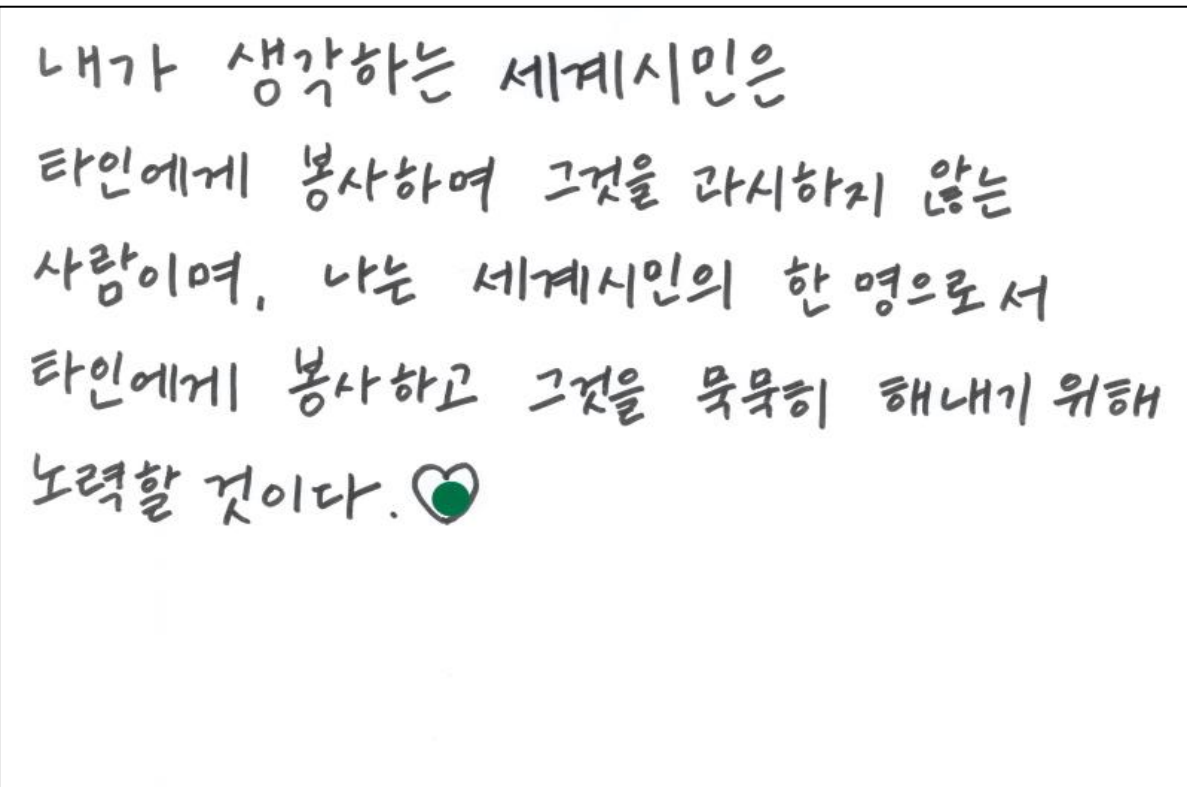 내가 생각하는 세계시민은
타인에게 봉사하며 그것을 과시하지 않는
사람이며, 나는 세계시민의 한 명으로서
타인에게 봉사하고 그것을 묵묵히 해내기 위해
노력할 것이다.